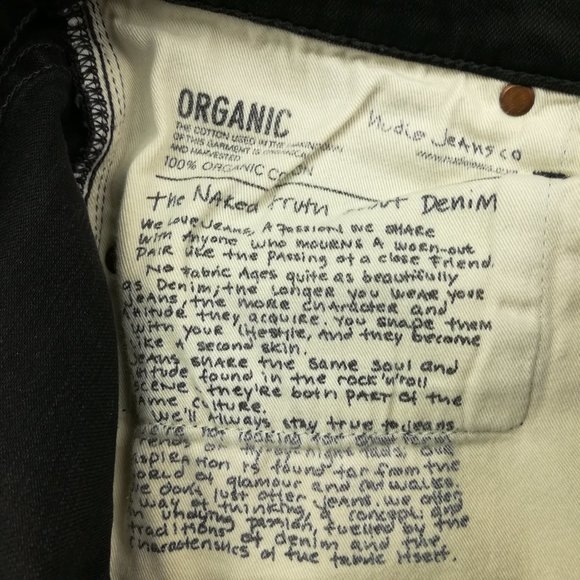 ORGANIC
THE COTTON USED IN THE
OF THIS GARMENT IS
AND HARVESTED
100% ORGANIC
Nudie Jeans co
the Naked truth Denim
We Love Jeans, A passion we share
with anyone who mourns a worn-out
pair like the passing of a close friend.
No fabric Ages quite as beautifully
as Denim; the longer you wear your
Jeans, the more character and
they acquire. You shape them
with your lifestyle, and they become
a second skin.
Jeans share the same soul and
found in the rock'n'roll
scene they're both part of the
same culture.
We'll always stay true to jeans
not looking for
our
inspiration is found far from the
world of glamour and
We don't just offer jeans, we offer
way of thinking, a concept and
undying passion, fuelled by the
traditions of denim and the
characteristics of the fabric itself.